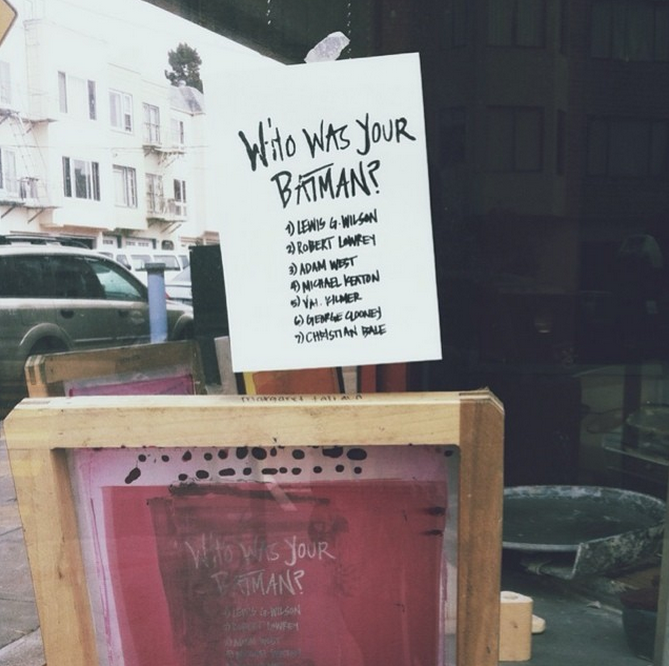 WHO WAS YOUR
BATMAN?
1) LEWIS G. WILSON
2) ROBERT LOWREY
3) ADAM WEST
4) MICHAEL KEATON
5) VAL KILMER
6) GEORGE CLOONEY
7) CHRISTIAN BALE
WHO WAS YOUR
BATMAN?
1) LEWIS G. WILSON
2) ROBERT LOWREY
3) ADAM WEST